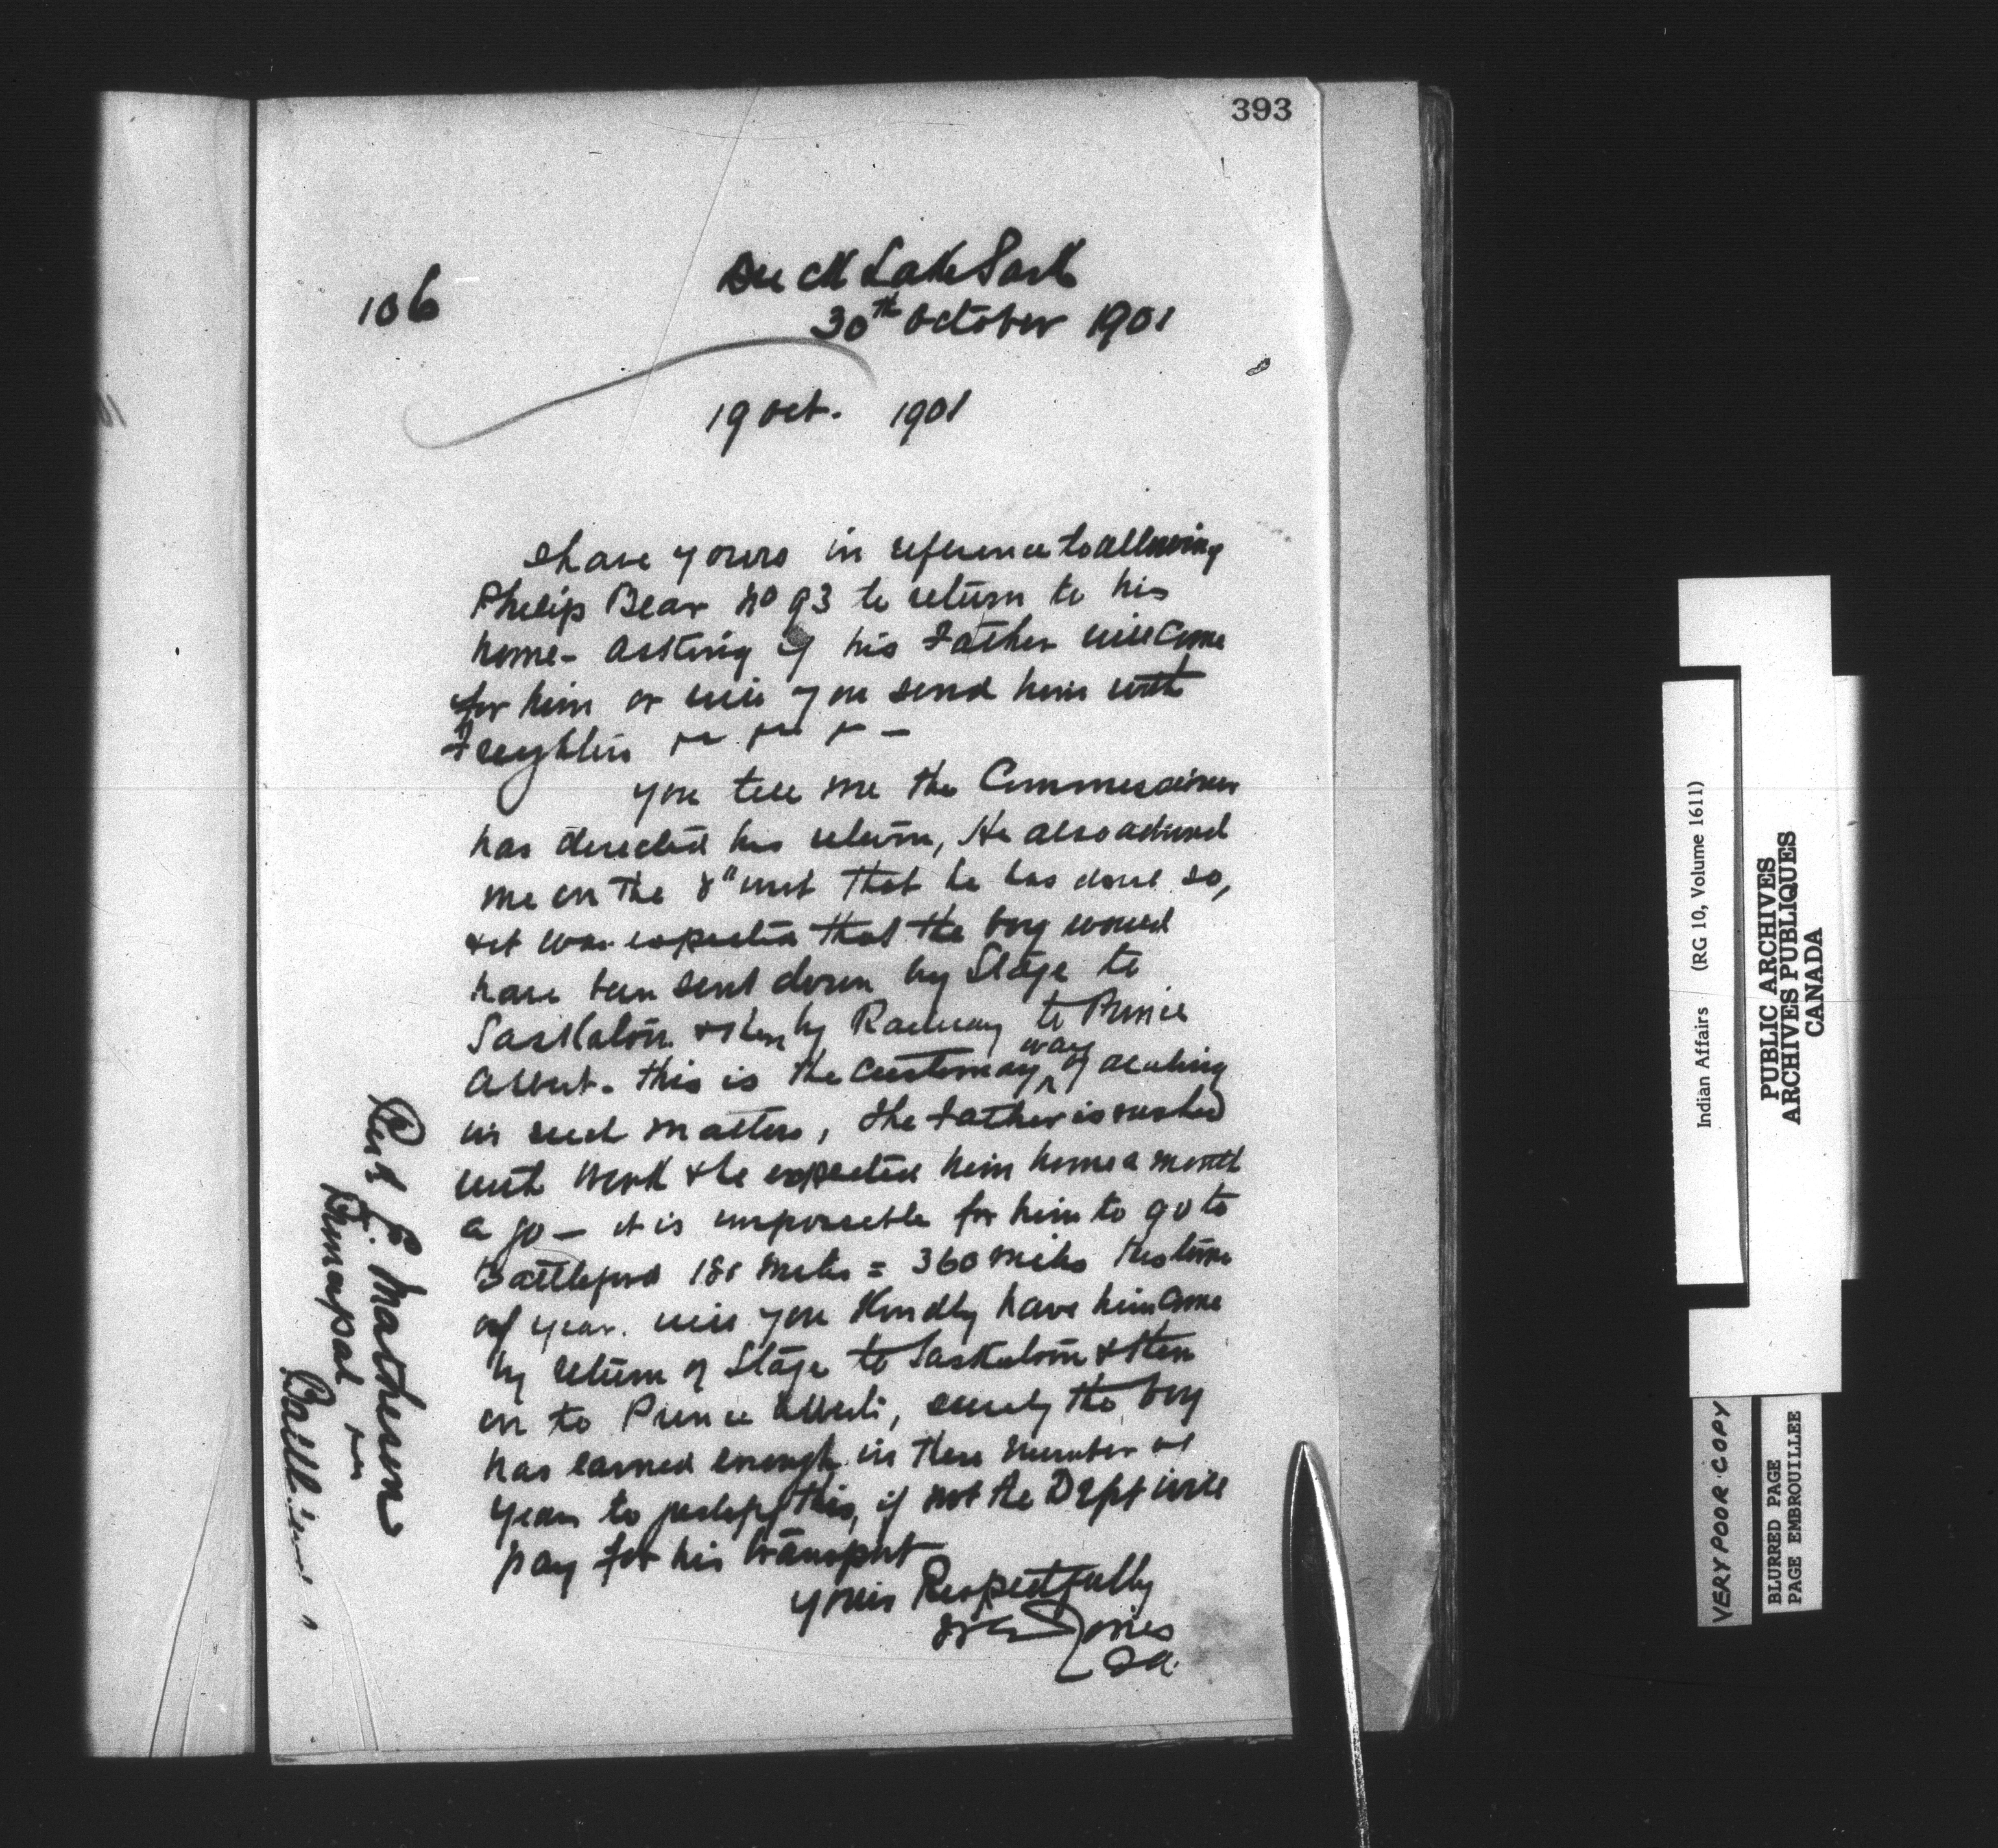 393
106
Duck Lake Sask
30th October 1901
19 Oct. 1901
I have yours in reference to allowing
Philip Bear No 93 to return to his
home - asking if his Father will come
for him or will you send him with
Freighters
you tell me the Commissioner
has directed his return, He also advised
me on the 8" inst that he has done so,
& it was expected that the boy would
have been sent down by Stage to
Saskatoon & then by Railway to Prince
Albert. this is the customary way of dealing
in such matters, the Father is rushed
with work & he expected him home a month
ago - it is impossible for him to go to
Battleford 180 miles = 360 miles this time
of year. will you Kindly have him come
by return of Stage to Saskatoon & then
on to Prince Albert, surely the boy
has earned enough in these number of
years to justify this, if not the Dept will
pay for his transport
yours Respectfully
Jones
IA.
Rev E. Matheson
Principal
Battleford
Indian Affairs (RG 10, Volume 1611)
PUBLIC ARCHIVES
ARCHIVES PUBLIQUES
CANADA
VERY POOR COPY
BLURRED PAGE
PAGE EMBROUILLEE